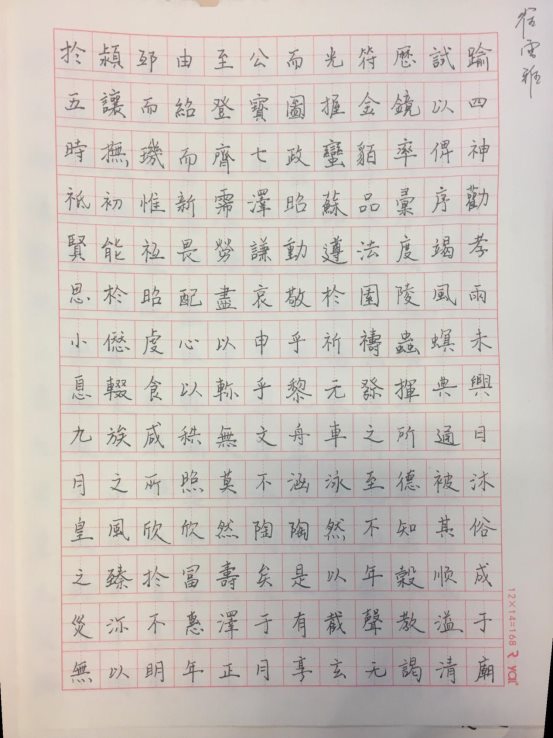 於潁邳由至公而光符歷試踰
五讓而紹登寶圖握金鏡以四
時撫璣而齊七政蠻貊率俾神
祗初惟新霈澤昭蘇品彙序勸
賢能祗畏勞謙動遵法度竭孝
思於昭配盡哀敬於園陵風雨
小僽虔心以申乎祈禱蟲螟未
息輟食以軫乎黎元發揮典興
九族咸秩無文舟車之所通日
月之所照莫不涵泳至德被沐
皇風欣欣然陶陶然不知其俗
之臻於冨壽矣是以年穀順成
災沵不惠澤于有截聲教溢于
無以明年正月享玄元謁清廟
12×14=168